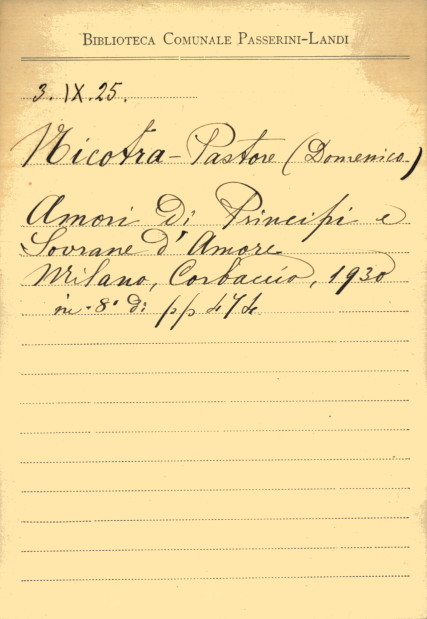 BIBLIOTECA COMUNALE PASSERINI-LANDI
3.IX.25.
Nicotra-Pastore (Domenico)
Amori di Principi e
Sovrane d'Amore
Milano, Corbaccio, 1930
in-8° di pp 474